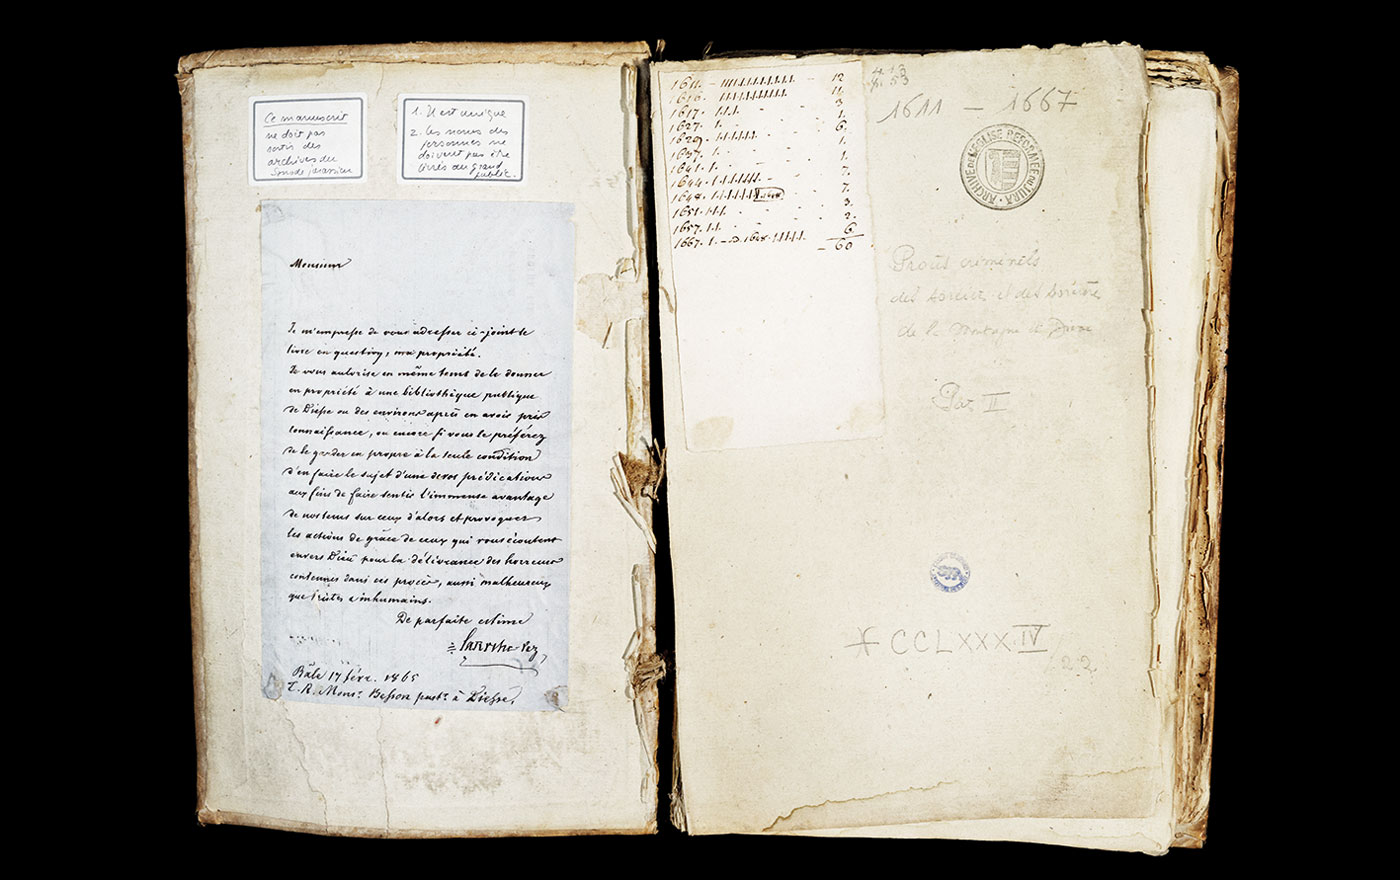 Ce manuscrit
ne doit pas
sortir des
archives du
Synode jurassien
1. Il est unique
2. Les noms des
personnes ne
doivent pas être
livrés au grand
public.
Monsieur
Je m'empresse de vous adresser ci-joint le
livre en question, ma propriété.
Je vous autorise en même tems de le donner
en propriété à une bibliothèque publique
de Diesse ou des environs après en avoir pris
connaissance, ou encore si vous le préférez
de le garder en propre à la seule condition
d'en faire le sujet d'une de vos prédications
aux fins de faire sentir l'immense avantage
de nos tems sur ceux d'alors et provoquer
les actions de grâce de ceux qui vous écoutent
envers Dieu pour la délivrance des horreurs
contenues dans ces procès, aussi malheureux
que tristes & inhumains.
De parfaite estime
Bâle 17 févr. 1865
T. R. Monsr. Besson pastr. à Diesse.
1611. - 12
1616. 11.
1617. 3.
1627. 1.
1629. 6.
1637. 1.
1641. 1.
1644. 7.
1648. 7.
1651. 3.
1657. 2.
1667. 1. - 1648. 6
- 60
1611 - 1667
ARCHIVE DE L'EGLISE REFORMEE DU JURA
Procès criminels
des sorciers et des sorcières
de la Montagne de Diesse
Par II
CCLXXXIV
22